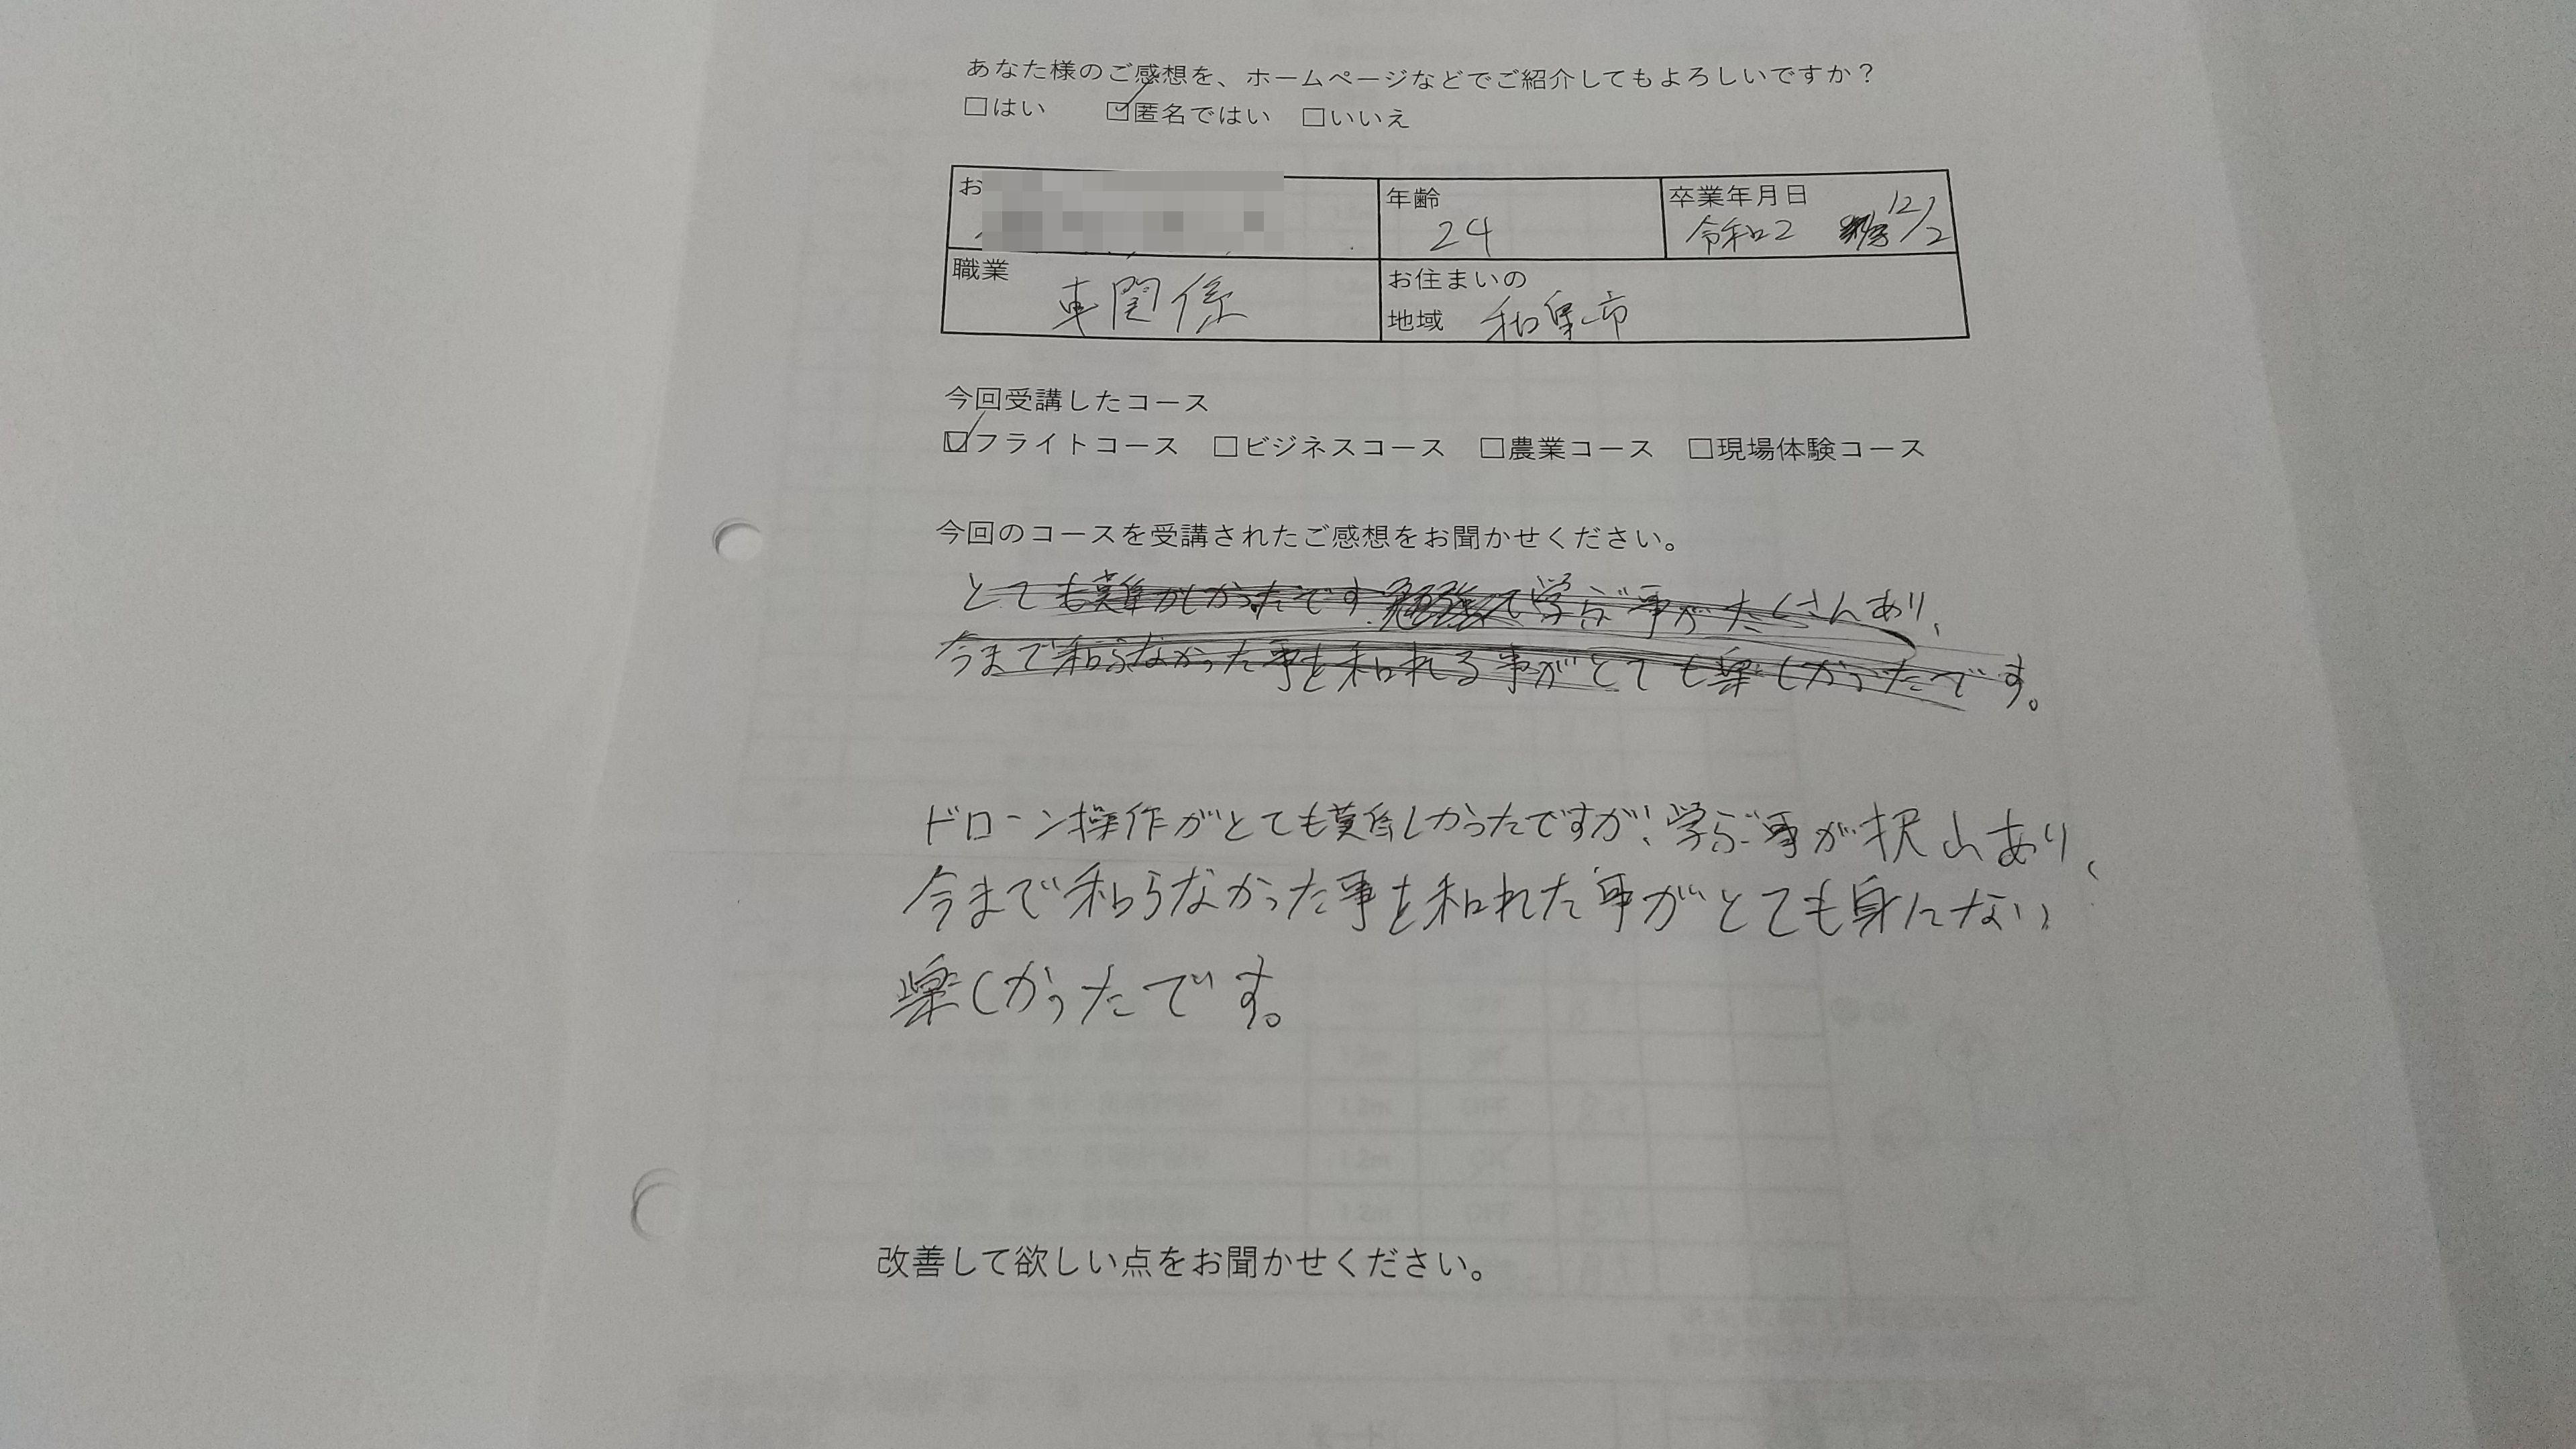 あなた様のご感想を、ホームページなどでご紹介してもよろしいですか？
□はい ☑匿名ではい □いいえ
お
年齢
24
卒業年月日
令和2 12/2
職業
車関係
お住まいの
地域 和泉市
今回受講したコース
☑フライトコース □ビジネスコース □農業コース □現場体験コース
今回のコースを受講されたご感想をお聞かせください。
とても難かしかったです 勉強で学ぶ事がたくさんあり、
今まで知らなかった事を知れる事がとても楽しかったです。
ドローン操作がとても難しかったですが、学ぶ事が沢山あり、
今まで知らなかった事を知れた事がとても身になり
楽しかったです。
改善して欲しい点をお聞かせください。